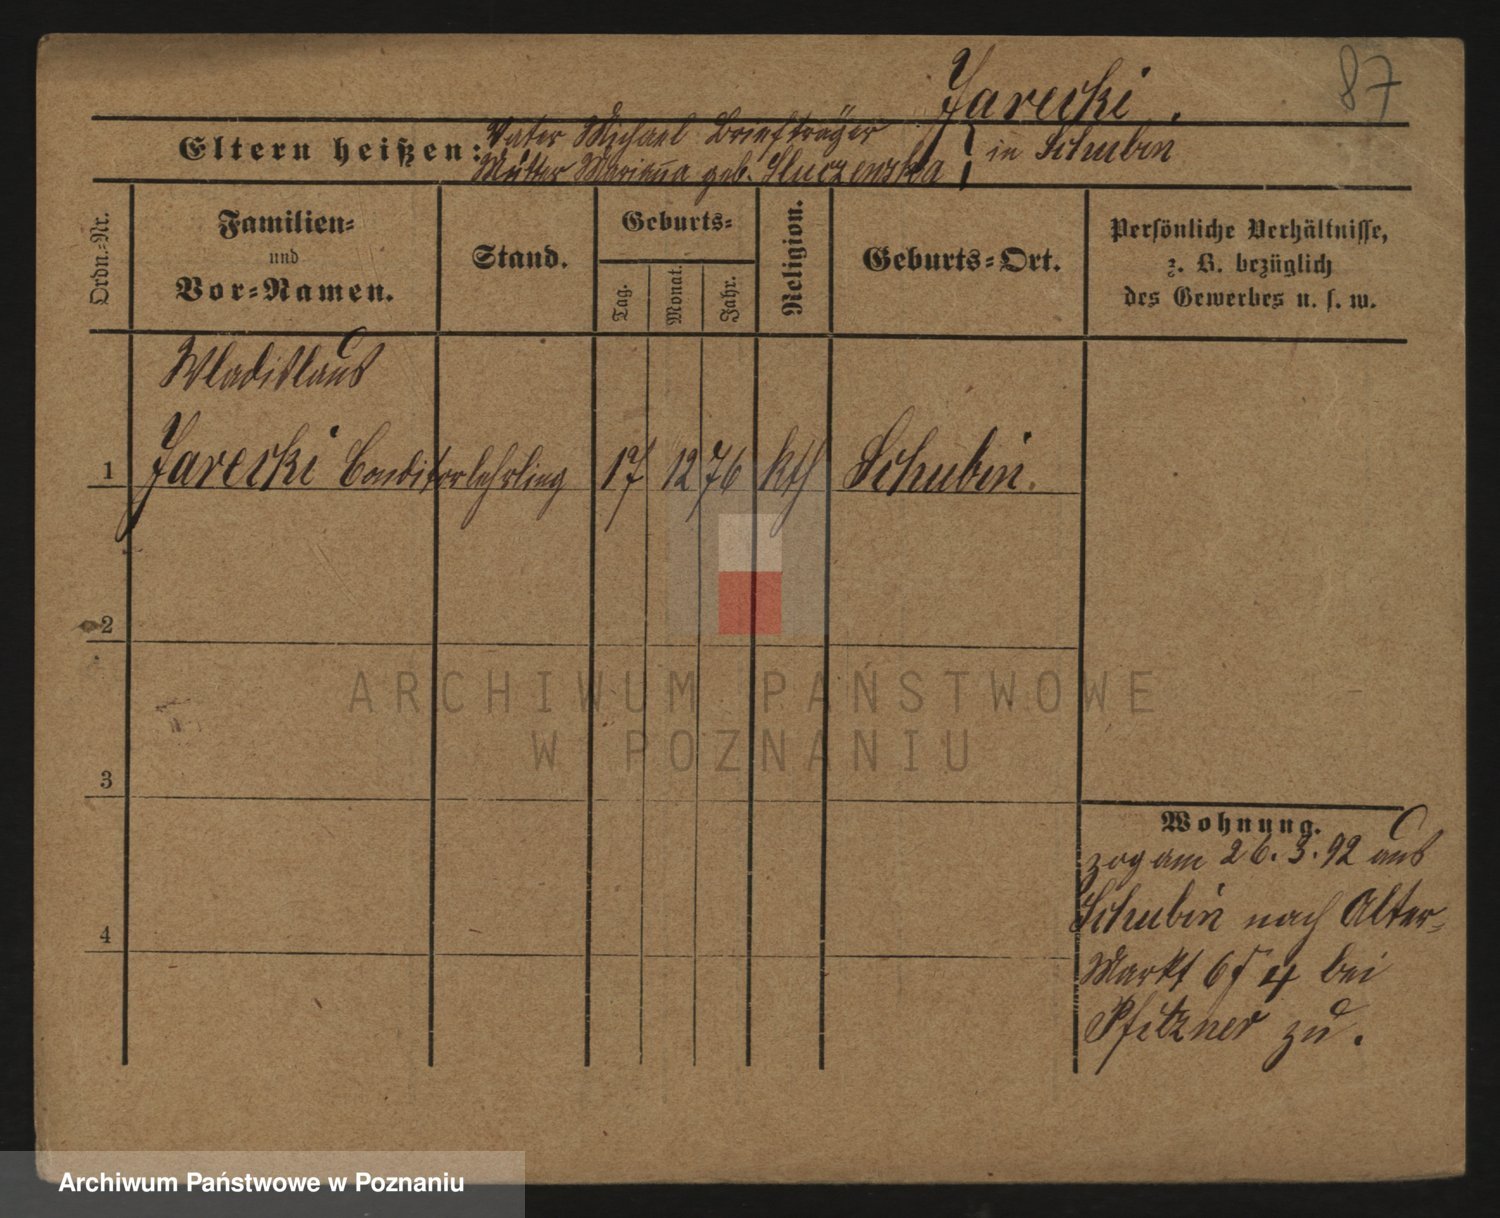 87
Jarecki.
Eltern heißen: Vater Michael Briefträger
Mutter Marianna geb. Sluczenska } in Schubin
Ordn.-Nr.
Familien-
und
Vor-Namen.
Stand.
Geburts-
Tag.
Monat.
Jahr.
Religion.
Geburts-Ort.
Persönliche Verhältnisse,
z. B. bezüglich
des Gewerbes u. s. w.
Wladislaus
1 Jarecki Conditorlehrling 17 12 76 kth Schubin.
2
3
4
Wohnung.
zog am 26. 3. 92 aus
Schubin nach Alter-
Markt 6 4 bei
Pfitzner zu.
ARCHIWUM PAŃSTWOWE
W POZNANIU
Archiwum Państwowe w Poznaniu